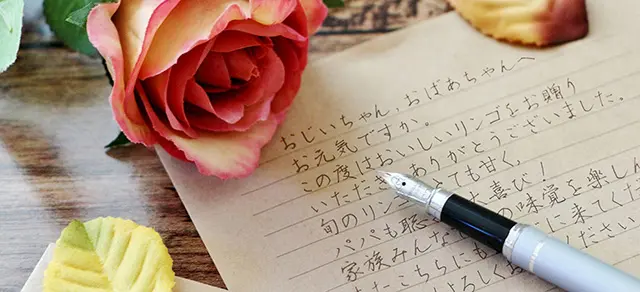 おじいちゃん、おばあちゃんへ
お元気ですか。
この度はおいしいリンゴをお贈り
いただき ありがとうございました。
旬のリン ても甘く、
パパも聡 喜び！
家族みんな の味覚を楽しん
またこちらにも に来てくだ
よろしくお ください